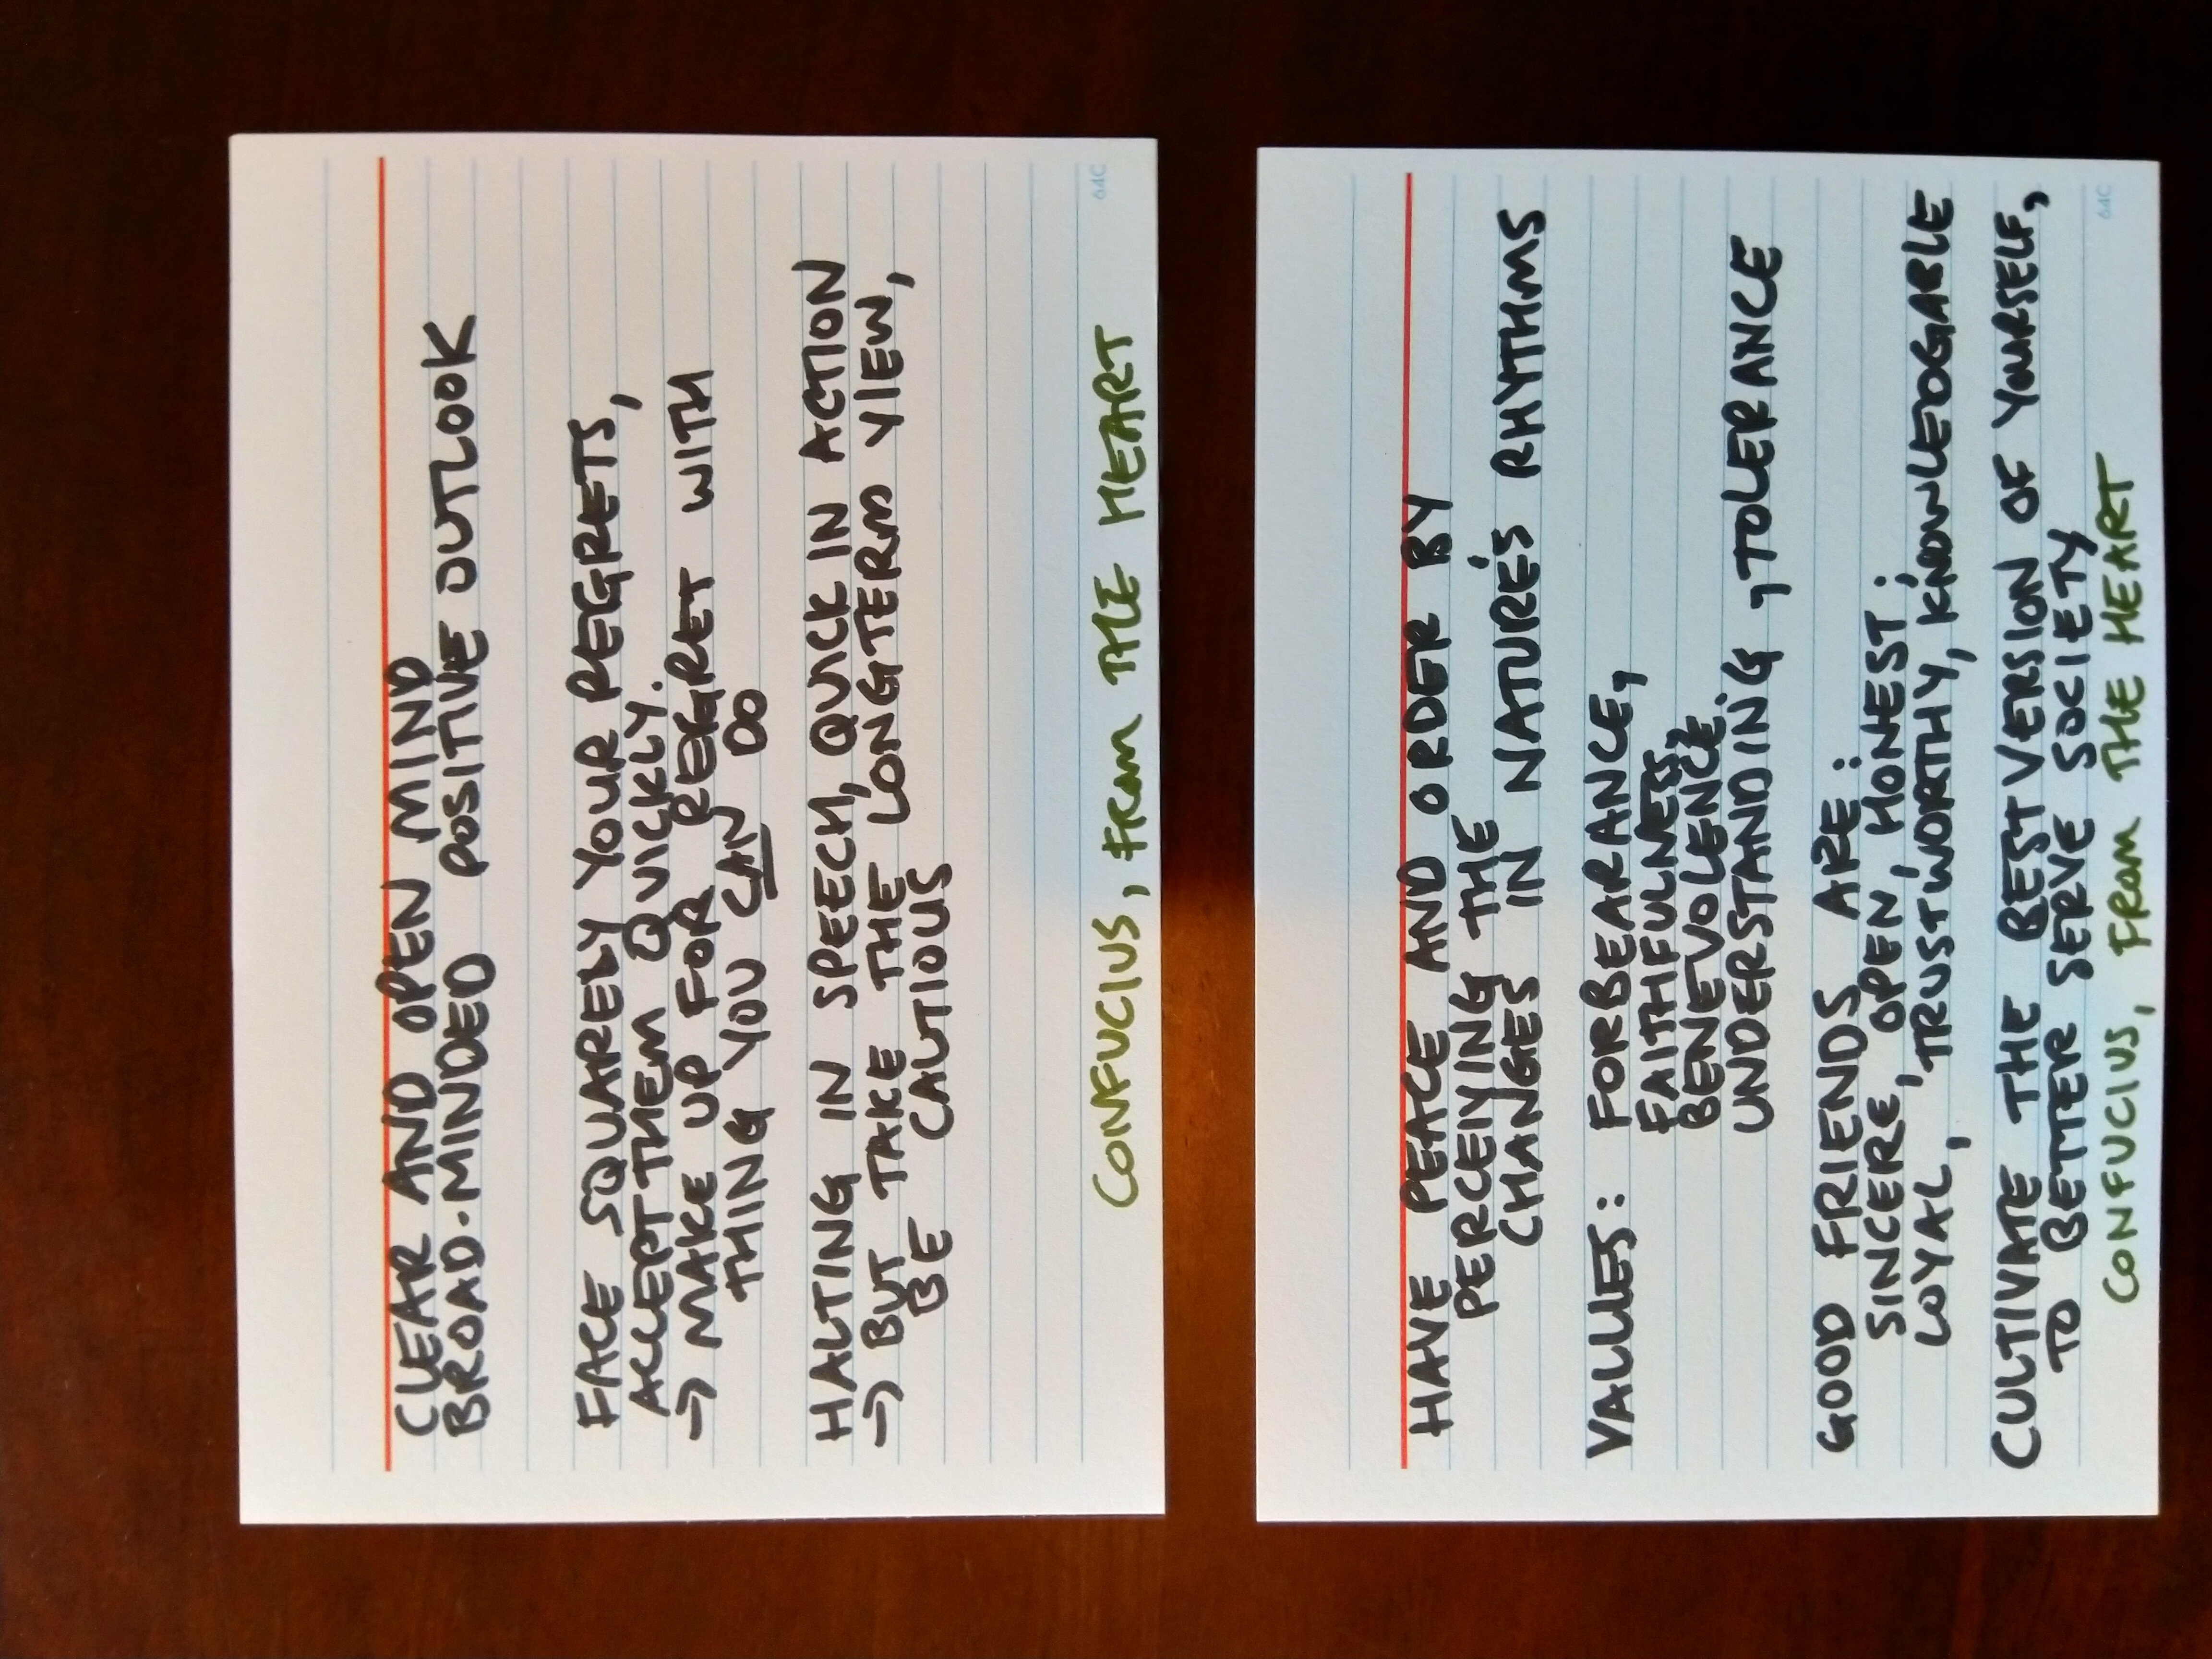 CLEAR AND OPEN MIND
BROAD-MINDED POSITIVE OUTLOOK
FACE SQUARELY YOUR REGRETS,
ACCEPT THEM QUICKLY.
→ MAKE UP FOR REGRET WITH
THING YOU CAN DO
HALTING IN SPEECH, QUICK IN ACTION
→ BUT TAKE THE LONGTERM VIEW,
BE CAUTIOUS
CONFUCIUS, FROM THE HEART
64C
HAVE PEACE AND ORDER BY
PERCEIVING THE
CHANGES IN NATURE'S RHYTHMS
VALUES: FORBEARANCE,
FAITHFULNESS,
BENEVOLENCE.
UNDERSTANDING, TOLERANCE
GOOD FRIENDS ARE:
SINCERE, OPEN, HONEST;
LOYAL, TRUSTWORTHY, KNOWLEDGABLE
CULTIVATE THE BEST VERSION OF YOURSELF,
TO BETTER SERVE SOCIETY
64C
CONFUCIUS, FROM THE HEART